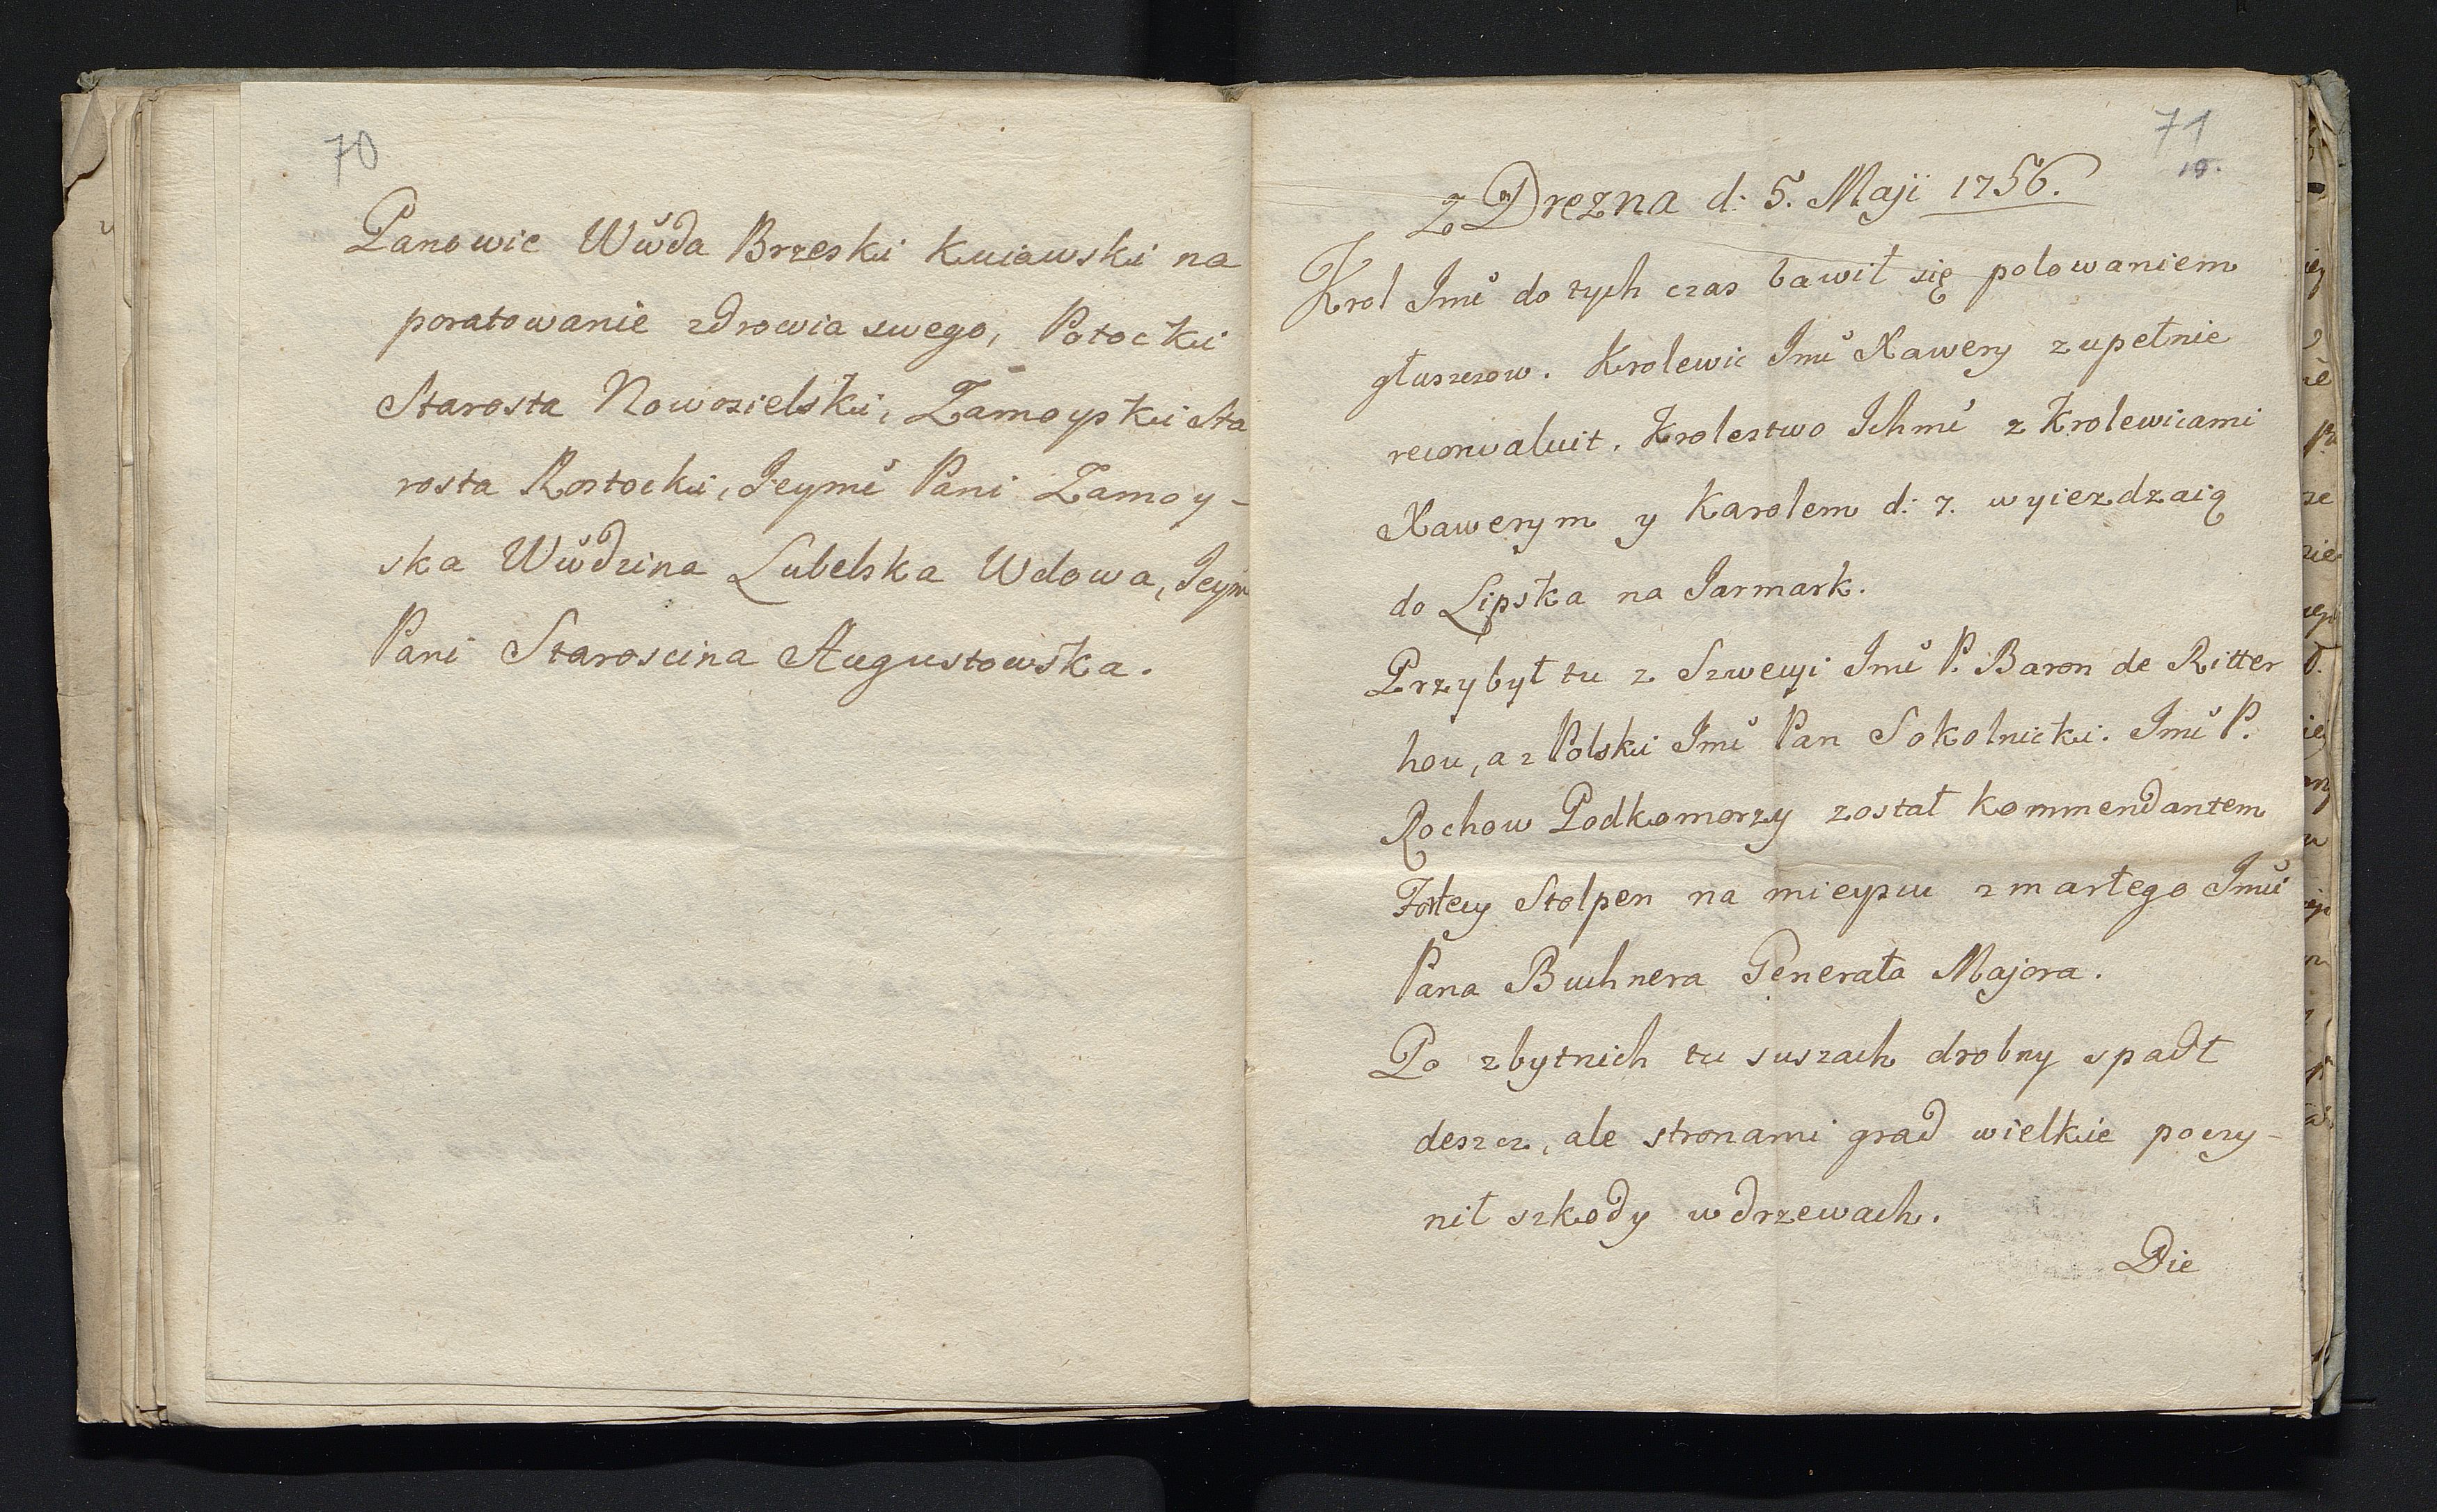 70
Panowie Wwda Brzeski Kuiawski na
poratowanie zdrowia swego, Potocki
Starosta Nowosielski, Zamoyski Sta
rosta Rostocki, Jeymć Pani Zamoy-
ska Wwdzina Lubelska Wdowa, Jeym
Pani Staroscina Augustowska.
71
19.
Z Drezna d: 5. Maji 1756.
Krol Jmć do tych czas bawił się polowaniem
głuszcow. Krolewic Jmć Xawery zupełnie
reconvaluit. Krolestwo Ichmć z Krolewicami
Xawerym y Karolem d: 7. wyiezdzaią
do Lipska na Jarmark.
Przybył tu z Szwecyi Jmć P. Baron de Ritter
hou, a z Polski Jmć Pan Sokolnicki. Jmć P.
Rochow Podkomorzy został kommendantem
Fortecy Stolpen na mieyscu zmarłego Jmći
Pana Buchnera Generała Majora.
Po zbytnich tu suszach drobny spadł
deszcz, ale stronami grad wielkie poczy-
nił szkody w drzewach.
Die